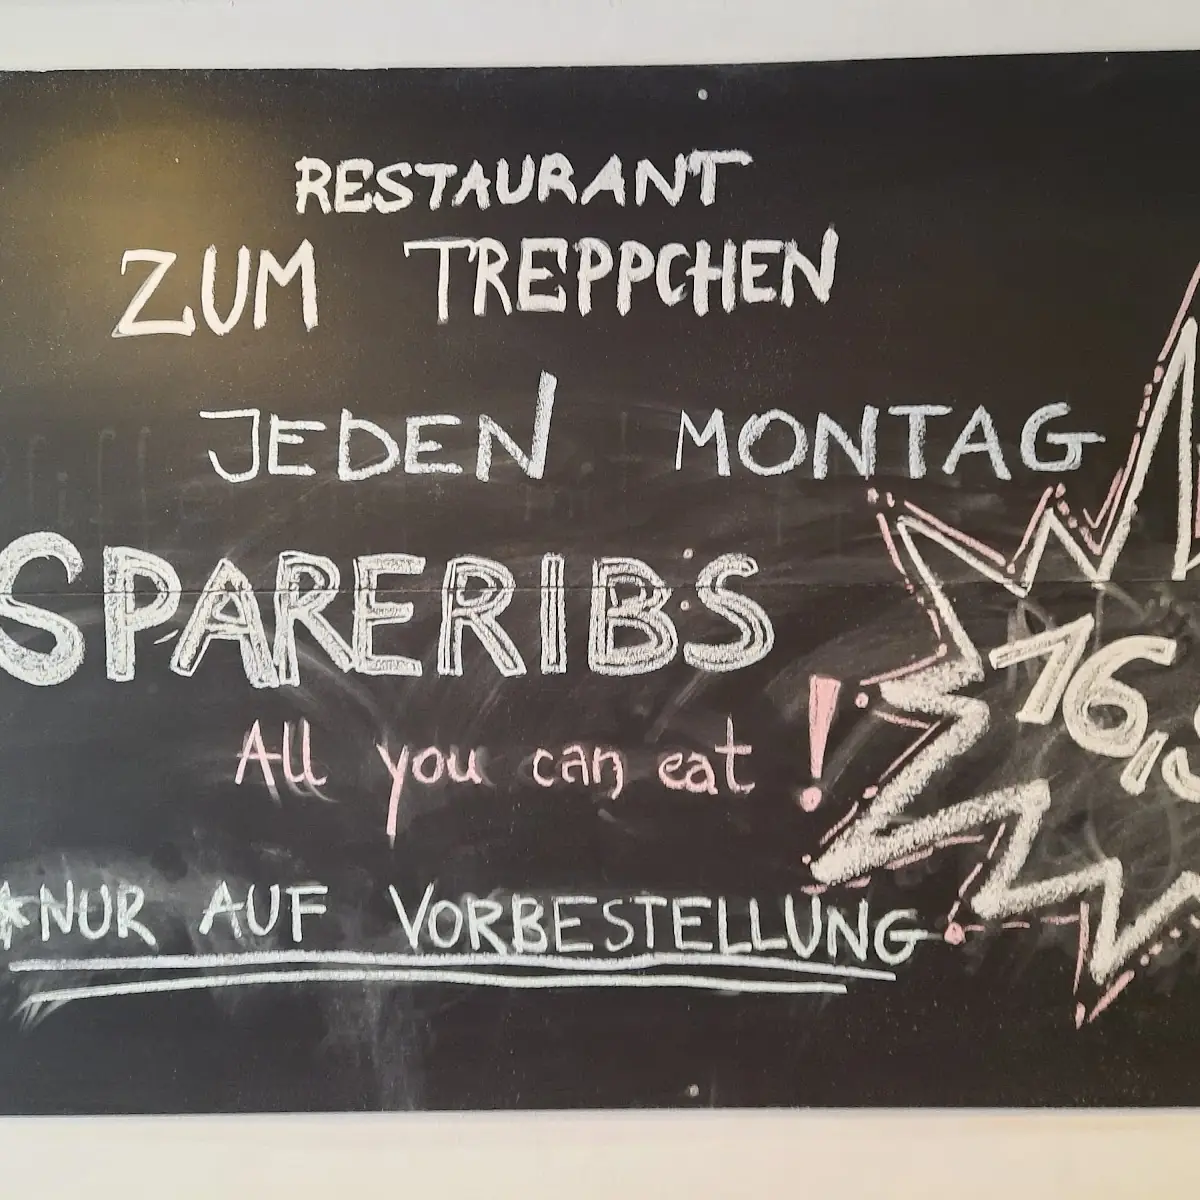 RESTAURANT
ZUM TREPPCHEN
JEDEN MONTAG
SPARERIBS
All you can eat!
16,
*NUR AUF VORBESTELLUNG